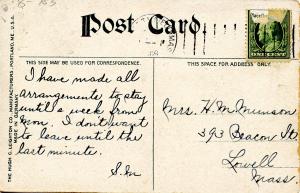 Post Card
ONE CENT
THIS SIDE MAY BE USED FOR CORRESPONDENCE.
THIS SPACE FOR ADDRESS ONLY.
THE HUGH C. LEIGHTON CO., MANUFACTURERS, PORTLAND, ME., U.S.A.
I have made all
arrangements to stay
until a week from
now. I don't want
to leave until the
last minute.
S.M
Mrs. H. M. Munson
393 Beacon St
Lowell
Mass.